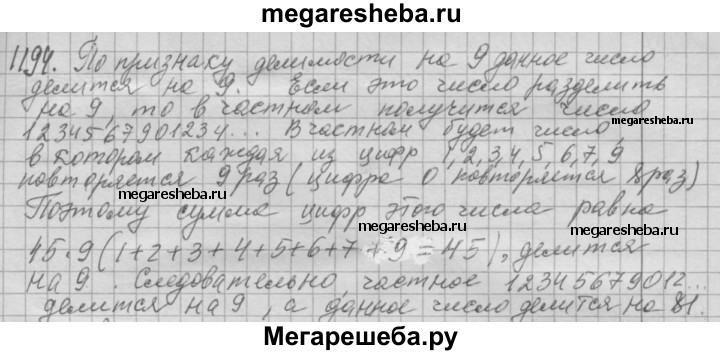 megaresheba.ru
1194. По признаку делимости на 9 данное число
делится на 9. Если это число разделить
на 9, то в частном получится число
megaresheba.ru
1234567901234... В частном будет число,
megaresheba.ru
в котором каждая из цифр 1,2,3,4,5,6,7,9
повторяется 9 раз (цифра 0 повторяется 8 раз)
megaresheba.ru
Поэтому сумма цифр этого числа равна
45·9 (1+2+3+4+5+6+7+9=45), делится
на 9. Следовательно, частное 12345679012...
делится на 9, а данное число делится на 81.
megaresheba.ru
Мегарешеба.ру